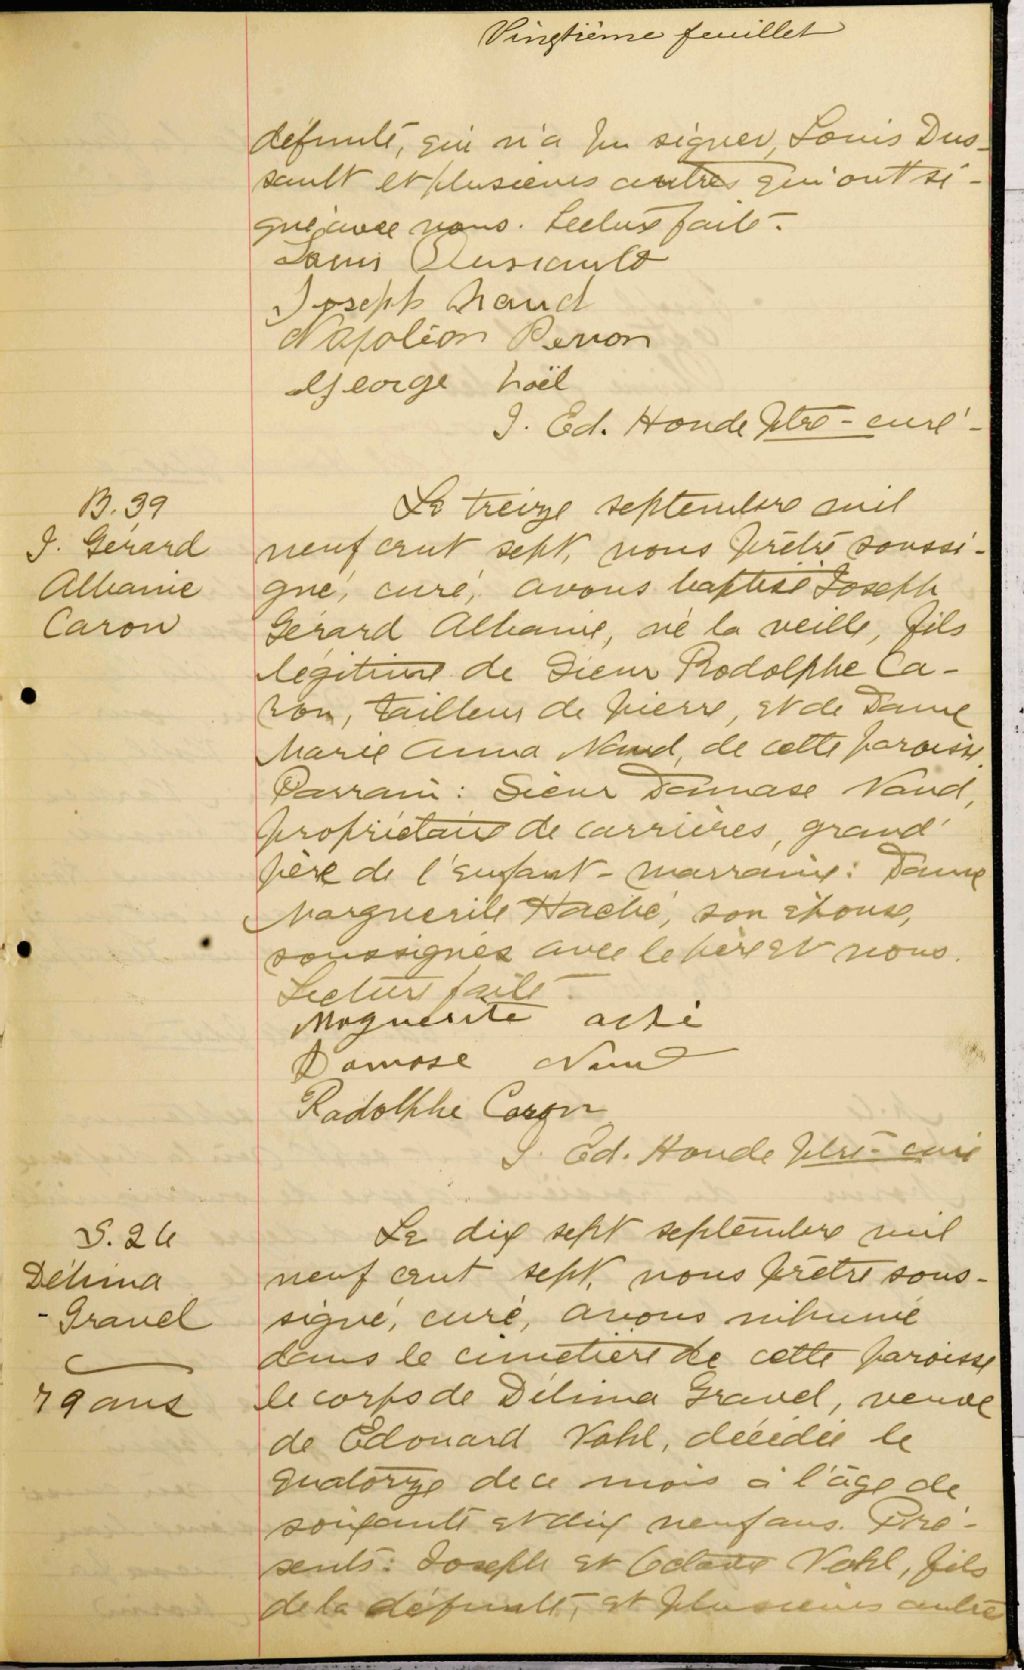 Vingtième feuillet
défunte, qui n'a pu signer, Louis Dus-
sault et plusieurs autres qui ont si-
gné avec nous. Lecture faite -
Louis Dussault
Joseph Naud
Napoléon Perron
George Noël
J. Ed. Houde Ptre - curé -
B. 39
J. Gérard
Albanie
Caron
Le treize septembre mil
neuf cent sept, nous prêtre soussi-
gné, curé, avons baptisé Joseph
Gérard Albanie, né la veille, fils
légitime de Sieur Rodolphe Ca-
ron, tailleur de pierre, et de Dame
Marie Anna Naud, de cette paroisse.
Parrain : Sieur Damase Naud,
propriétaire de carrières, grand'
père de l'enfant - marraine : Dame
Marguerite Haché, son épouse,
soussignés avec le père et nous.
Lecture faite -
Marguerite aché
Damase Naud
Radolphe Caron
J. Ed. Houde ptre - curé
S. 26
Délima
- Gravel
79 ans
Le dix sept septembre mil
neuf cent sept, nous prêtre sous-
signé, curé, avons inhumé
dans le cimetière de cette paroisse
le corps de Délima Gravel, veuve
de Edouard Vohl, décédée le
quatorze de ce mois à l'âge de
soixante et dix neuf ans. Pré-
sents : Joseph et Octave Vohl, fils
de la défunte, et plusieurs autres